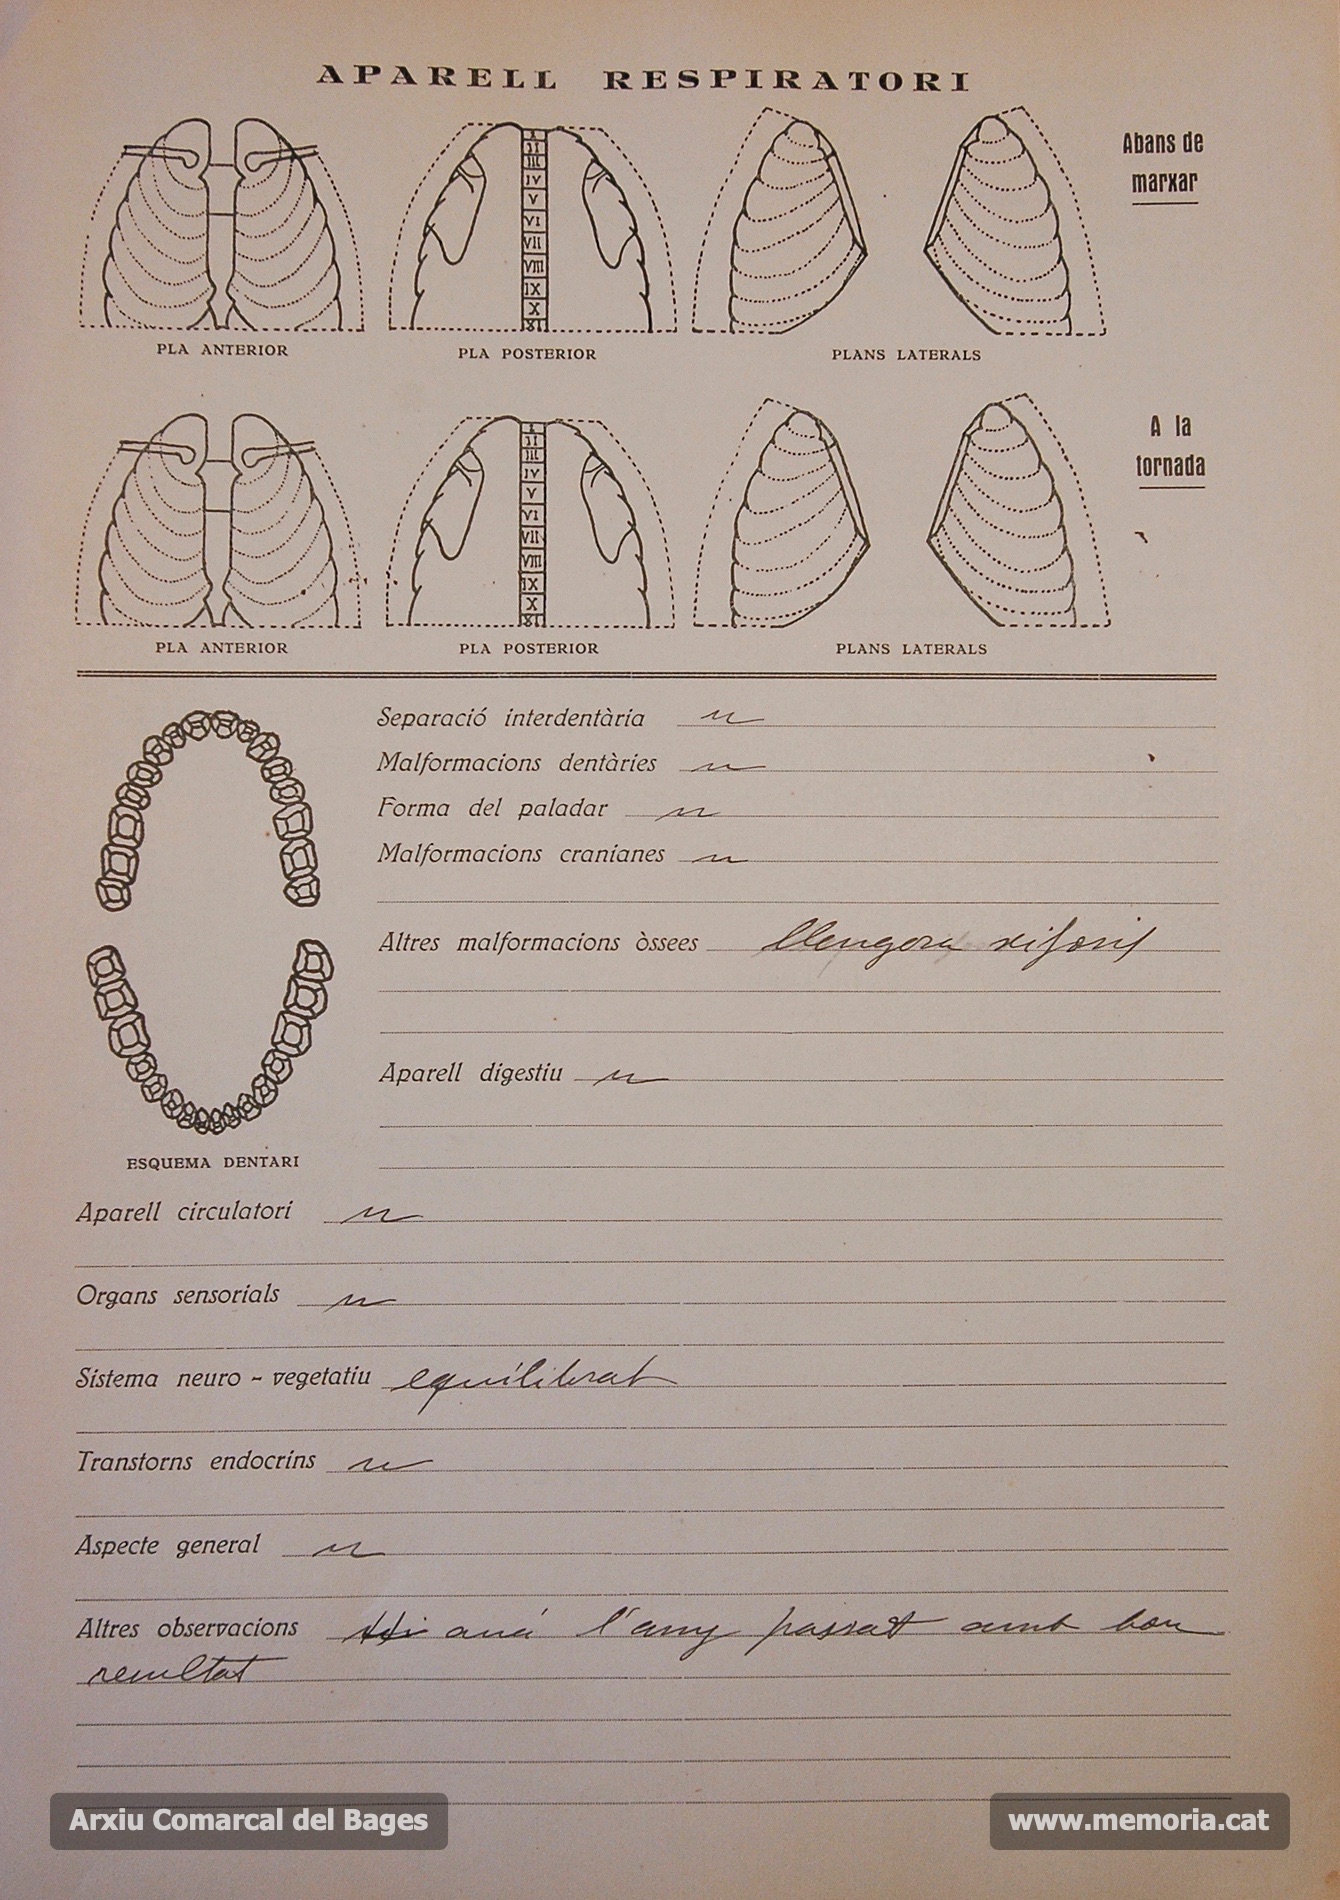 APARELL RESPIRATORI
Abans de
marxar
I
II
III
IV
V
VI
VII
VIII
IX
X
XI
PLA ANTERIOR
PLA POSTERIOR
PLANS LATERALS
A la
tornada
I
II
III
IV
V
VI
VII
VIII
IX
X
XI
PLA ANTERIOR
PLA POSTERIOR
PLANS LATERALS
Separació interdentària n
Malformacions dentàries n
Forma del paladar n
Malformacions cranianes n
Altres malformacions òssees
Aparell digestiu n
ESQUEMA DENTARI
Aparell circulatori n
Organs sensorials n
Sistema neuro - vegetatiu equilibrat
Transtorns endocrins n
Aspecte general n
Altres observacions Hi aná l'any passat amb bon
resultat
Arxiu Comarcal del Bages
www.memoria.cat